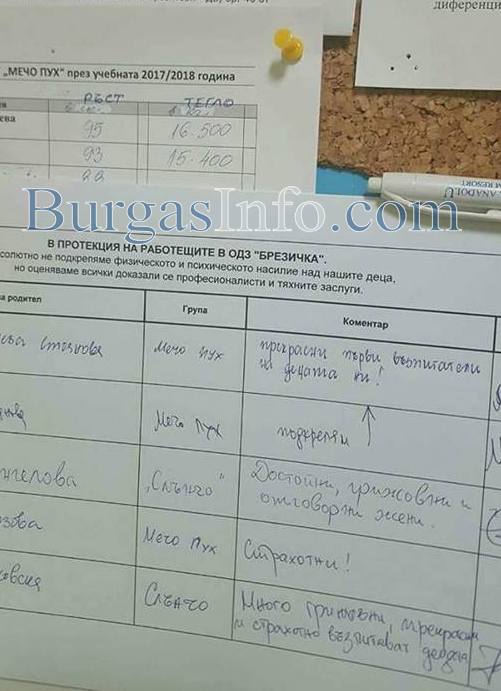 диференци
„МЕЧО ПУХ" през учебната 2017/2018 година
РЪСТ ТЕГЛО
ева 95 16.500
93 15.400
ANADOLU
RESORT
BurgasInfo.com
В ПРОТЕКЦИЯ НА РАБОТЕЩИТЕ В ОДЗ "БРЕЗИЧКА".
солютно не подкрепяме физическото и психическото насилие над нашите деца,
но оценяваме всички доказали се професионалисти и техните заслуги.
родител Група Коментар
Мечо пух прекрасни първи възпитатели
на децата ни!
Мечо Пух подкрепям ↑
нгелова „Слънчо" Достойни, грижовни и
отговорни жени.
зова Мечо Пух Страхотни!
Слънчо Много грижовни, прекрасни
и страхотно възпитават децата